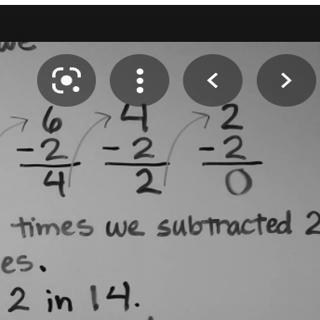 we
6 4 2
-2 -2 -2
4 2 0
times we subtracted 2
es.
2 in 14.